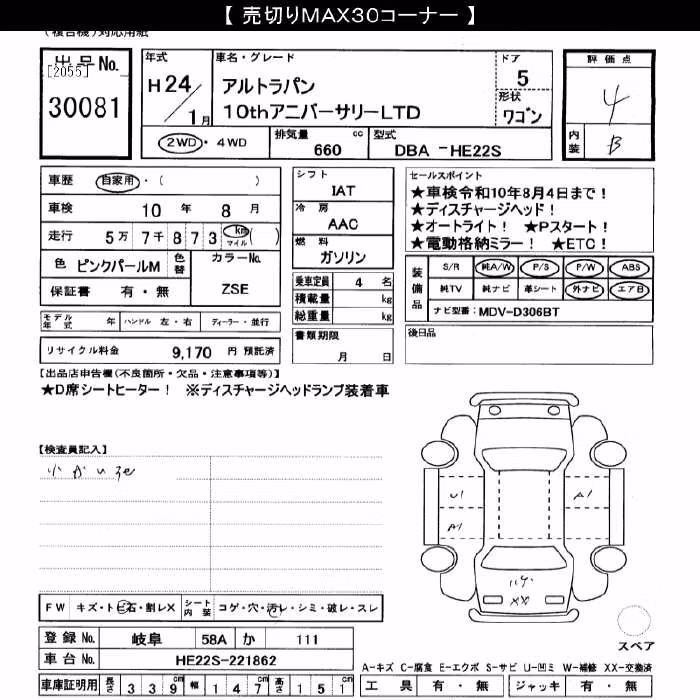 【 売切りMAX30コーナー 】
(複合機)対応用紙
出品No.
[2055]
30081
年式
H24/1月
車名・グレード
アルトラパン
10thアニバーサリーLTD
ドア
5
形状
ワゴン
評価点
4
内装
B
2WD・4WD
排気量 cc
660
型式
DBA -HE22S
車歴 自家用・( )
車検 10 年 8 月
走行 5万 7千 8 7 3 km マイル ( )
色 ピンクパールM
色替
カラーNo.
ZSE
保証書 有・無
シフト
IAT
冷房
AAC
燃料
ガソリン
乗車定員 4 名
積載量 kg
総重量 kg
セールスポイント
★車検令和10年8月4日まで！
★ディスチャージヘッド！
★オートライト！ ★Pスタート！
★電動格納ミラー！ ★ETC！
装備品
S/R 純A/W P/S P/W ABS
純TV 純ナビ 革シート 外ナビ エアB
ナビ型番： MDV-D306BT
モデル年式 年 ハンドル 左・右 ディーラー・並行
書類期限
月 日
後日品
リサイクル料金 9,170 円 預託済
【出品店申告欄(不良箇所・欠品・注意事項等)】
★D席シートヒーター！ ※ディスチャージヘッドランプ装着車
【検査員記入】
小かいろ
U1
A1
A1
XX
FW キズ・トビ石・割レX
シート内装 コゲ・穴・汚レ・シミ・破レ・スレ
登録No. 岐阜 58A か 111
車台No. HE22S-221862
車庫証明用 長さ 339cm 幅 147cm 高さ 151cm
スペア
A-キズ C-腐食 E-エクボ S-サビ U-凹ミ W-補修 XX-交換済
工具 有・無 ジャッキ 有・無